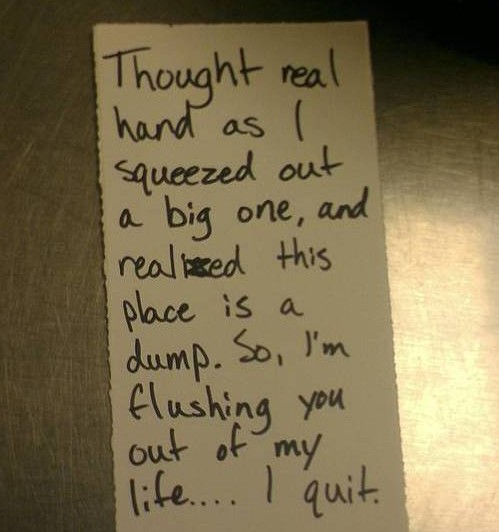 Thought real
hand as I
squeezed out
a big one, and
realized this
place is a
dump. So, I'm
flushing you
out of my
life.... I quit.